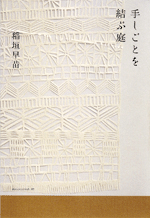 手しごとを
結ぶ庭
稲垣早苗